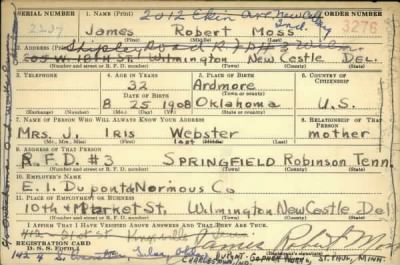 SERIAL NUMBER 1. NAME (Print) 2012 Ekin Ave New Albany Ind. ORDER NUMBER
James Robert Moss 3276
(First) (Middle) (Last)
2. ADDRESS (Print) Shipley Road R.F.D #3 Wilm.
W. 10th St. Wilmington New Castle Del.
(Number and street or R. F. D. number) (Town) (County) (State)
3. TELEPHONE 4. AGE IN YEARS 5. PLACE OF BIRTH 6. COUNTRY OF CITIZENSHIP
32 Ardmore
DATE OF BIRTH (Town or county)
8 25 1908 Oklahoma U.S.
(Exchange) (Number) (Mo.) (Day) (Yr.) (State or country)
7. NAME OF PERSON WHO WILL ALWAYS KNOW YOUR ADDRESS 8. RELATIONSHIP OF THAT PERSON
Mrs. J. Iris Webster mother
(Mr., Mrs., Miss) (First) (Middle) (Last)
9. ADDRESS OF THAT PERSON
R.F.D. #3 SPRINGFIELD Robinson Tenn.
(Number and street or R. F. D. number) (Town) (County) (State)
10. EMPLOYER'S NAME
E. I. Dupont de Normous Co
11. PLACE OF EMPLOYMENT OR BUSINESS
10th & Market St. Wilmington New Castle Del
(Number and street or R. F. D. number) (Town) (County) (State)
I AFFIRM THAT I HAVE VERIFIED ABOVE ANSWERS AND THAT THEY ARE TRUE.
REGISTRATION CARD James Robert Moss
D. S. S. Form 1
ST. PAUL, MINN.